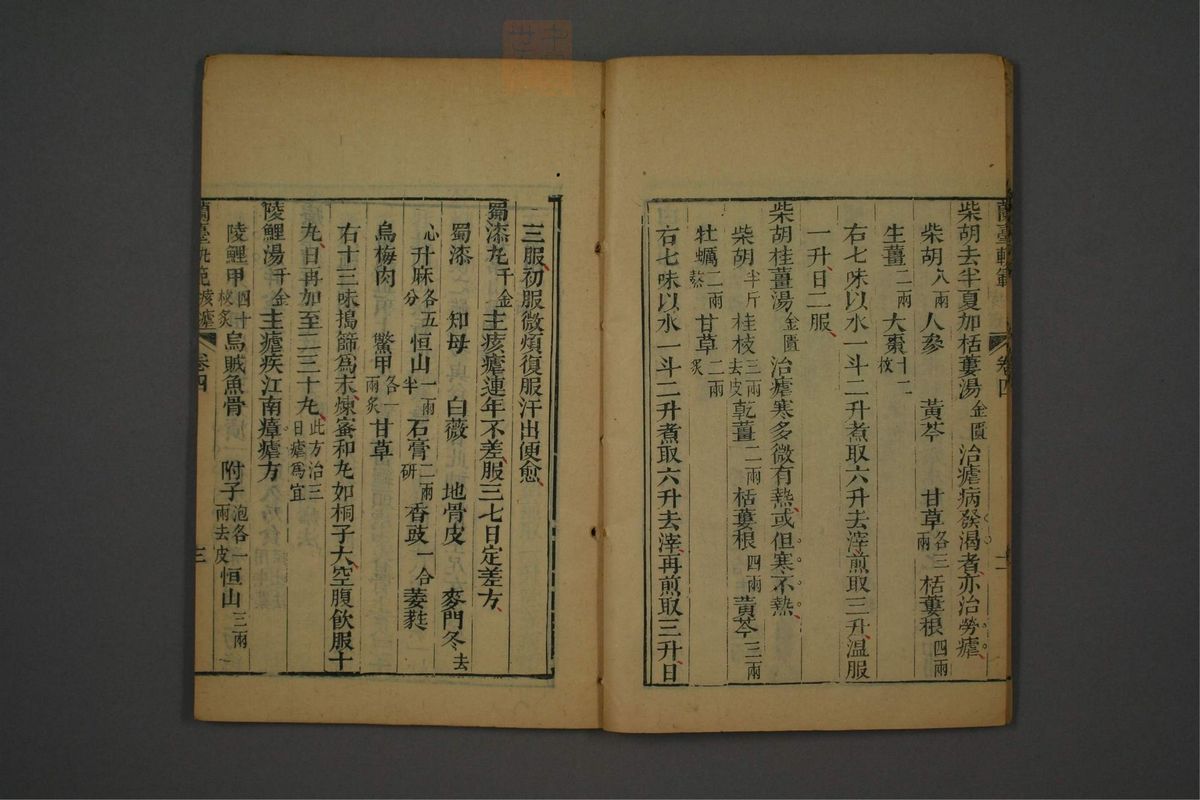 蘭臺軌範 卷四 二
柴胡去半夏加栝蔞湯金匱 治瘧病發渴者亦治勞瘧
柴胡八兩 人參 黃芩 甘草各三兩 栝蔞根四兩
生薑二兩 大棗十二枚
右七味以水一斗二升煮取六升去滓煎取三升溫服
一升日二服
柴胡桂薑湯金匱 治瘧寒多微有熱或但寒不熱
柴胡半斤 桂枝三兩去皮 乾薑二兩 栝蔞根四兩 黃芩三兩
牡蠣二兩熬 甘草二兩炙
右七味以水一斗二升煮取六升去滓再煎取三升日
三服初服微煩復服汗出便愈
蜀漆丸千金 主痎瘧連年不差服三七日定差方
蜀漆 知母 白薇 地骨皮 麥門冬去
心 升麻各五分 恒山一兩半 石膏二兩研 香豉一合 萎蕤
烏梅肉 鱉甲各一兩炙 甘草
右十三味搗篩為末煉蜜和丸如桐子大空腹飲服十
丸日再加至二三十丸此方治三日瘧為宜
陵鯉湯千金 主瘧疾江南瘴瘧方
陵鯉甲四十枚炙 烏賊魚骨 附子泡各一兩去皮 恒山三兩
蘭臺軌範 痎瘧 卷四 三